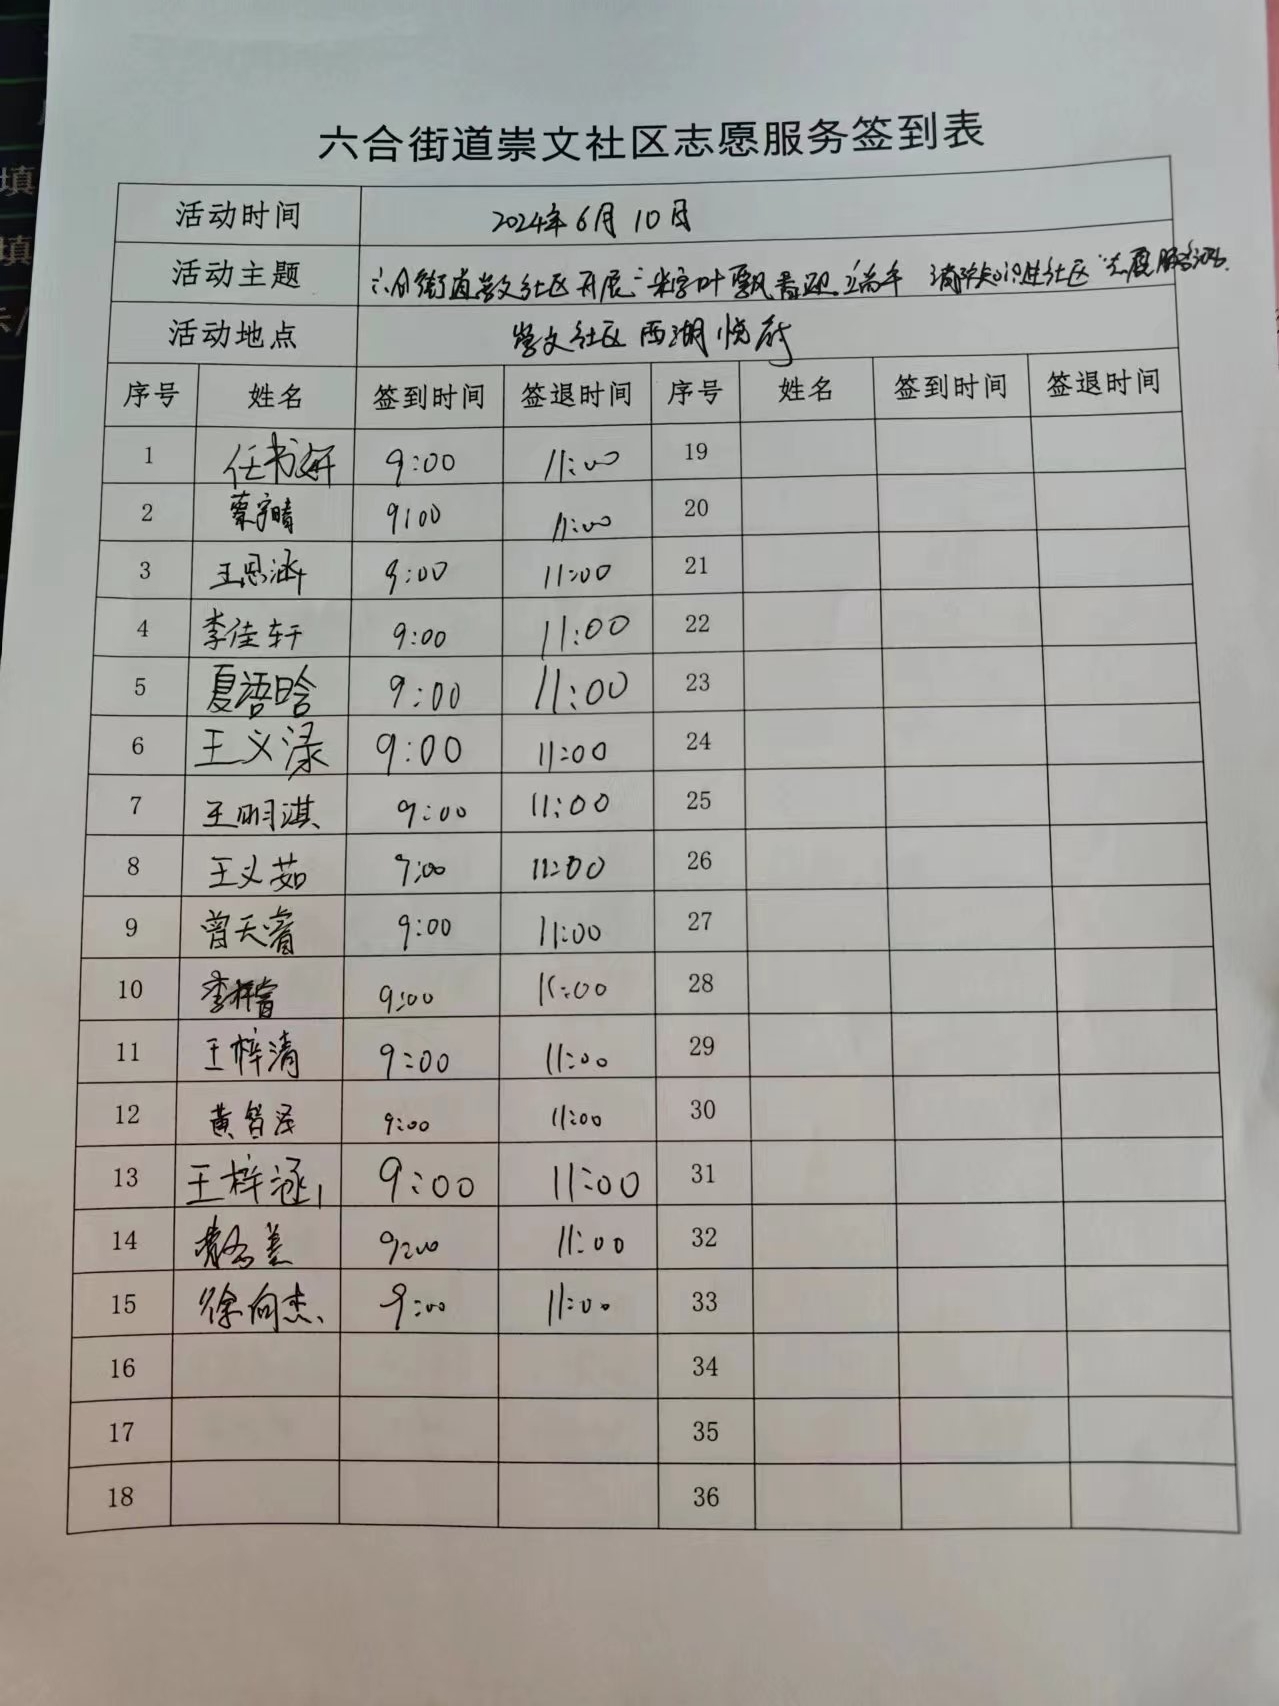 填
填
六合街道崇文社区志愿服务签到表
活动时间 2024年6月10日
活动主题 六合街道崇文社区开展"米字叶飘香迎端午 消防知识进社区"志愿服务活动
活动地点 崇文社区西湖悦府
序号 姓名 签到时间 签退时间 序号 姓名 签到时间 签退时间
1 任书妍 9:00 11:00 19
2 蔡宇晴 9:00 11:00 20
3 王思涵 9:00 11:00 21
4 李佳轩 9:00 11:00 22
5 夏语晗 9:00 11:00 23
6 王义渌 9:00 11:00 24
7 王明淇 9:00 11:00 25
8 王义茹 9:00 11:00 26
9 曾天睿 9:00 11:00 27
10 李梓睿 9:00 11:00 28
11 王梓清 9:00 11:00 29
12 黄智泽 9:00 11:00 30
13 王梓涵 9:00 11:00 31
14 9:00 11:00 32
15 徐向杰 9:00 11:00 33
16 34
17 35
18 36